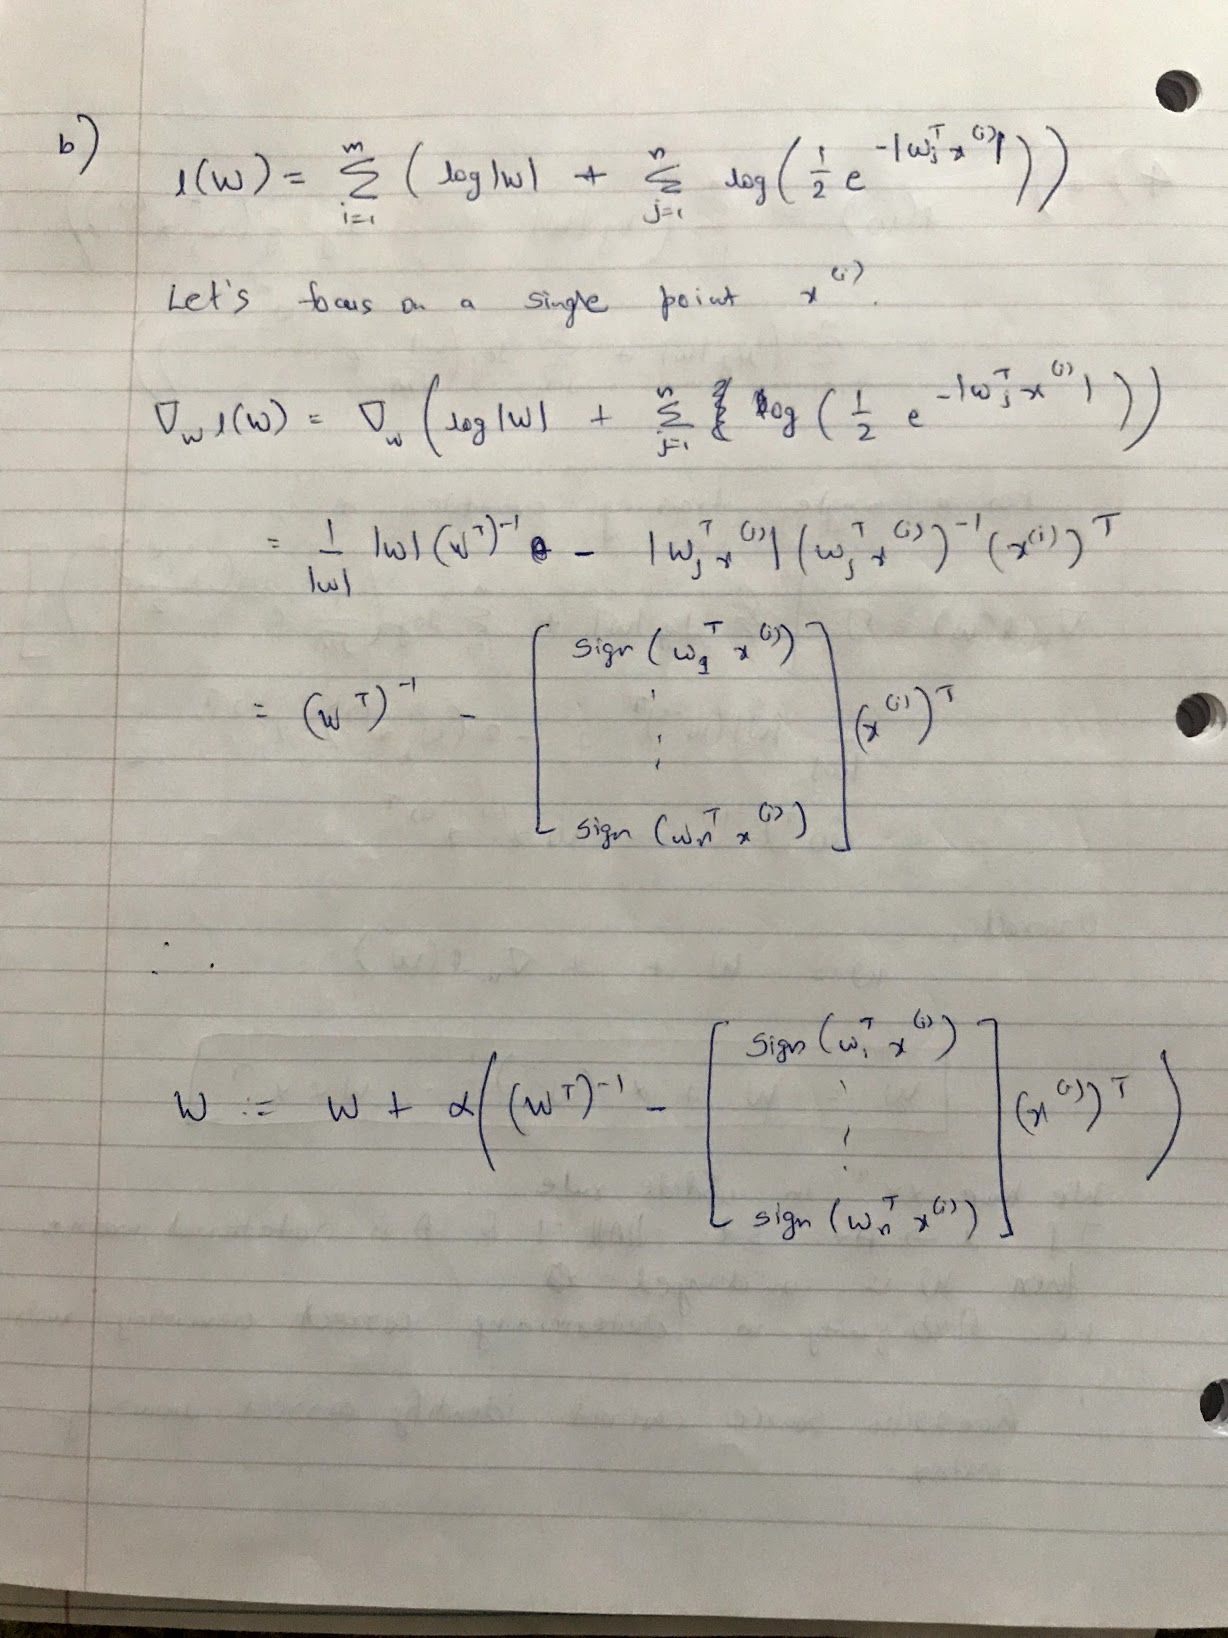 b)
l(W) = Σ_{i=1}^{m} ( log|W| + Σ_{j=1}^{n} log( 1/2 e^{-|w_j^T x^{(i)}|} ) )
Let's focus on a single point x^{(i)}.
∇_W l(W) = ∇_W ( log|W| + Σ_{j=1}^{n} log( 1/2 e^{-|w_j^T x^{(i)}|} ) )
= 1/|W| |W| (W^T)^{-1} - |w_j^T x^{(i)}| (w_j^T x^{(i)})^{-1} (x^{(i)})^T
= (W^T)^{-1} - [ sign(w_1^T x^{(i)}) ⋮ sign(w_n^T x^{(i)}) ] (x^{(i)})^T
∴
W := W + α( (W^T)^{-1} - [ sign(w_1^T x^{(i)}) ⋮ sign(w_n^T x^{(i)}) ] (x^{(i)})^T )